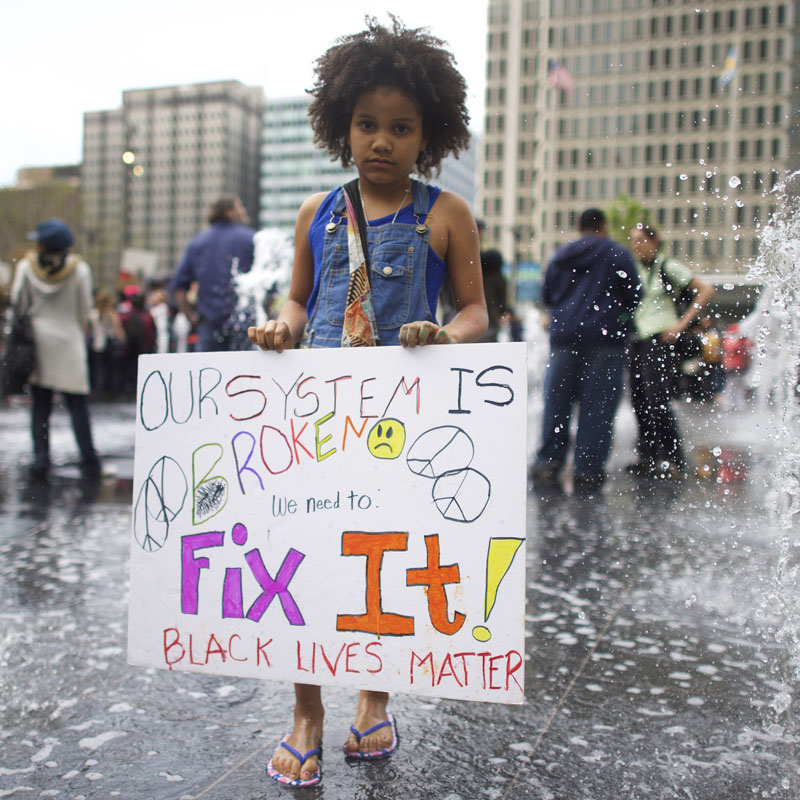 OUR SYSTEM IS
BROKEN
We need to:
Fix It!
BLACK LIVES MATTER